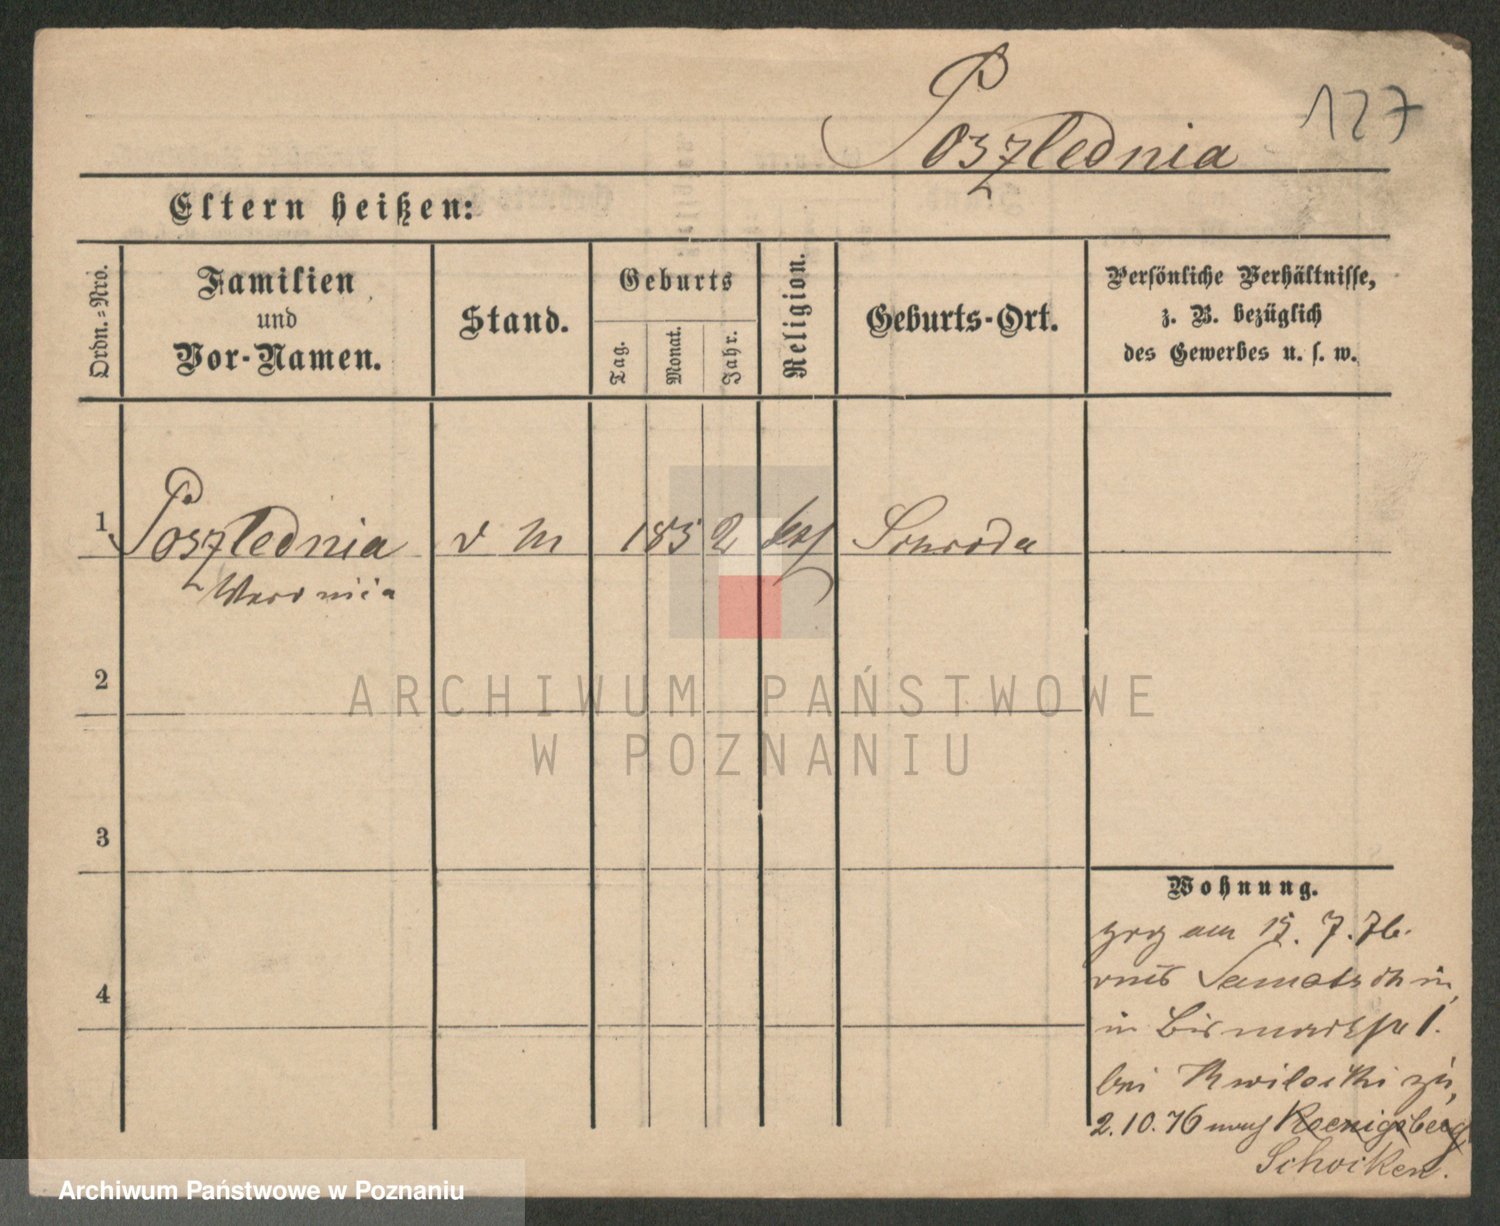 127
Poszlednia
Eltern heißen:
Ordn.=Nro.
Familien
und
Vor-Namen.
Stand.
Geburts
Tag.
Monat.
Jahr.
Religion.
Geburts-Ort.
Persönliche Verhältnisse,
z. B. bezüglich
des Gewerbes u. s. w.
1 Poszlednia d M 1852 kath Schroda
Veronica
2
3
4
Wohnung.
zog am 15. 7. 76.
von Samotschin
in Bismarckstr 1.
bei Kwilecki zu,
2.10.76 nach Koenigsberg
Schocken.
ARCHIWUM PAŃSTWOWE
W POZNANIU
Archiwum Państwowe w Poznaniu